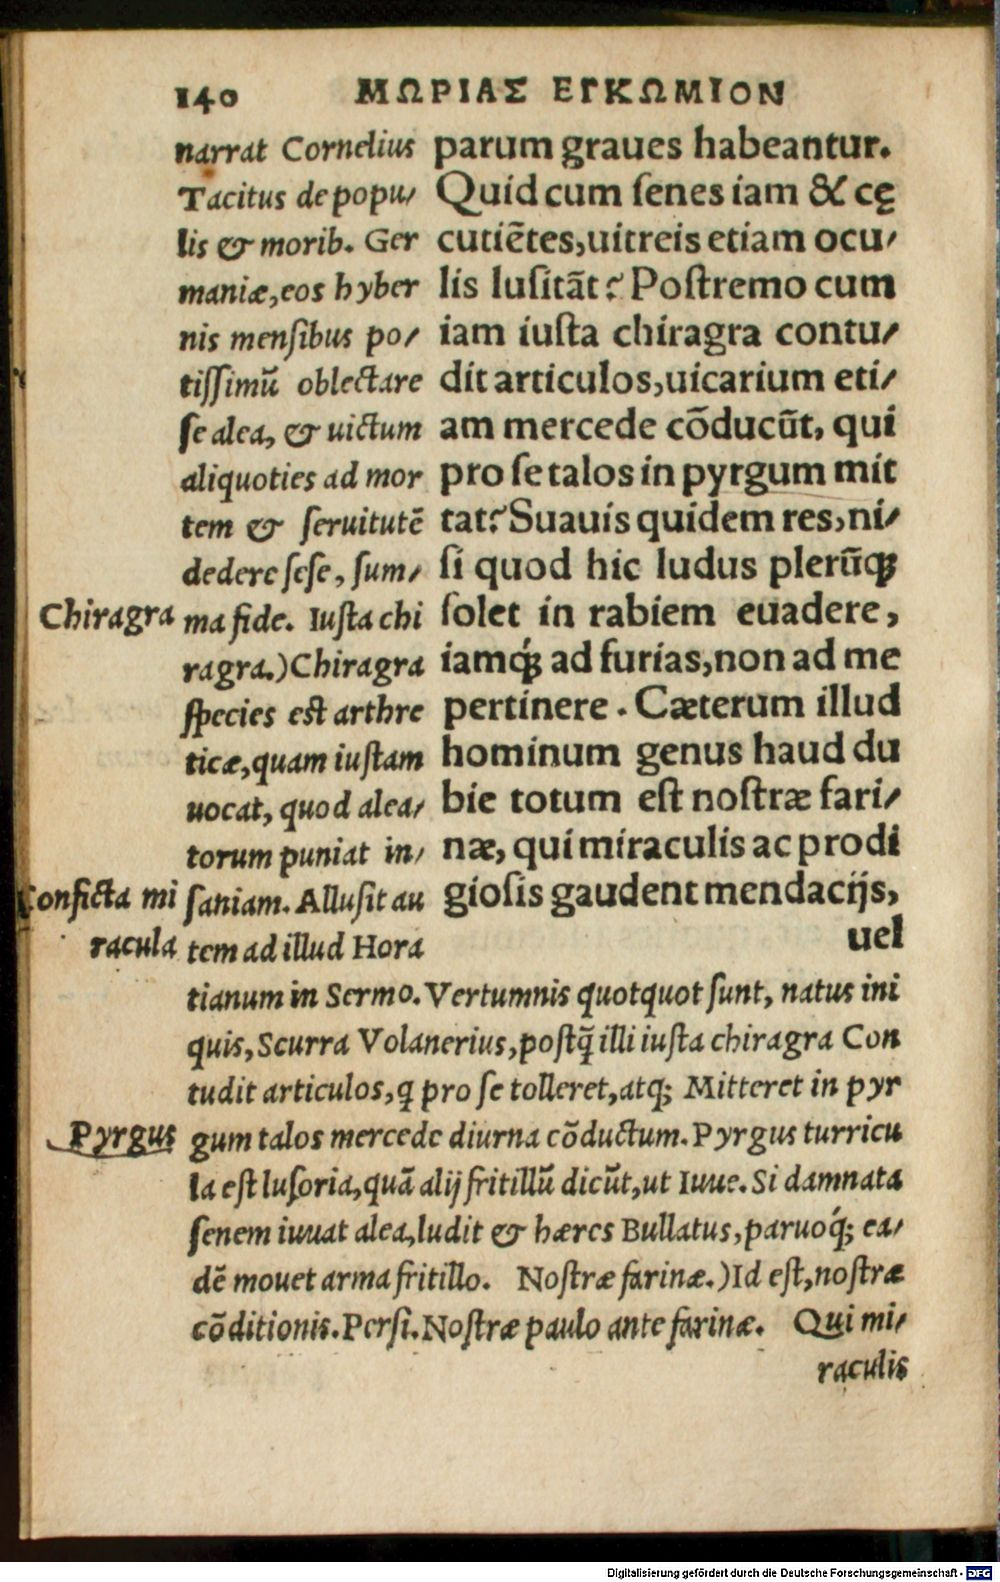 140 ΜΩΡΙΑΣ ΕΓΚΩΜΙΟΝ
parum graues habeantur.
Quid cum ſenes iam & cę
cutiẽtes, uitreis etiam ocu⸗
lis luſitãt? Poſtremo cum
iam iuſta chiragra contu⸗
dit articulos, uicarium eti⸗
am mercede cõducũt, qui
pro ſe talos in pyrgum mit
tat? Suauis quidem res, ni⸗
ſi quod hic ludus plerũq;
ſolet in rabiem euadere,
iamq́; ad furias, non ad me
pertinere. Cæterum illud
hominum genus haud du
bie totum eſt noſtræ fari⸗
næ, qui miraculis ac prodi
gioſis gaudent mendacijs,
uel
narrat Cornelius
Tacitus de popu⸗
lis & morib. Ger
maniæ, eos hyber
nis menſibus po⸗
tiſſimũ oblectare
ſe alea, & uictum
aliquoties ad mor
tem & ſeruitutẽ
dedere ſeſe, ſum⸗
ma fide. Iuſta chi
ragra.) Chiragra
ſpecies eſt arthre
ticæ, quam iuſtam
uocat, quod alea⸗
torum puniat in⸗
ſaniam. Alluſit au
tem ad illud Hora
tianum in Sermo. Vertumnis quotquot ſunt, natus ini
quis, Scurra Volanerius, poſtq̃ illi iuſta chiragra Con
tudit articulos, q pro ſe tolleret, atq; Mitteret in pyr
gum talos mercede diurna cõductum. Pyrgus turricu
la eſt luſoria, quã alij fritillũ dicũt, ut Iuue. Si damnata
ſenem iuuat alea, ludit & hæres Bullatus, paruoq́; ea⸗
dẽ mouet arma fritillo. Noſtræ farinæ.) Id eſt, noſtræ
cõditionis. Perſi. Noſtræ paulo ante farinæ. Qui mi⸗
raculis
Chiragra
Conficta mi
racula
Pyrgus
Digitalisierung gefördert durch die Deutsche Forschungsgemeinschaft - DFG